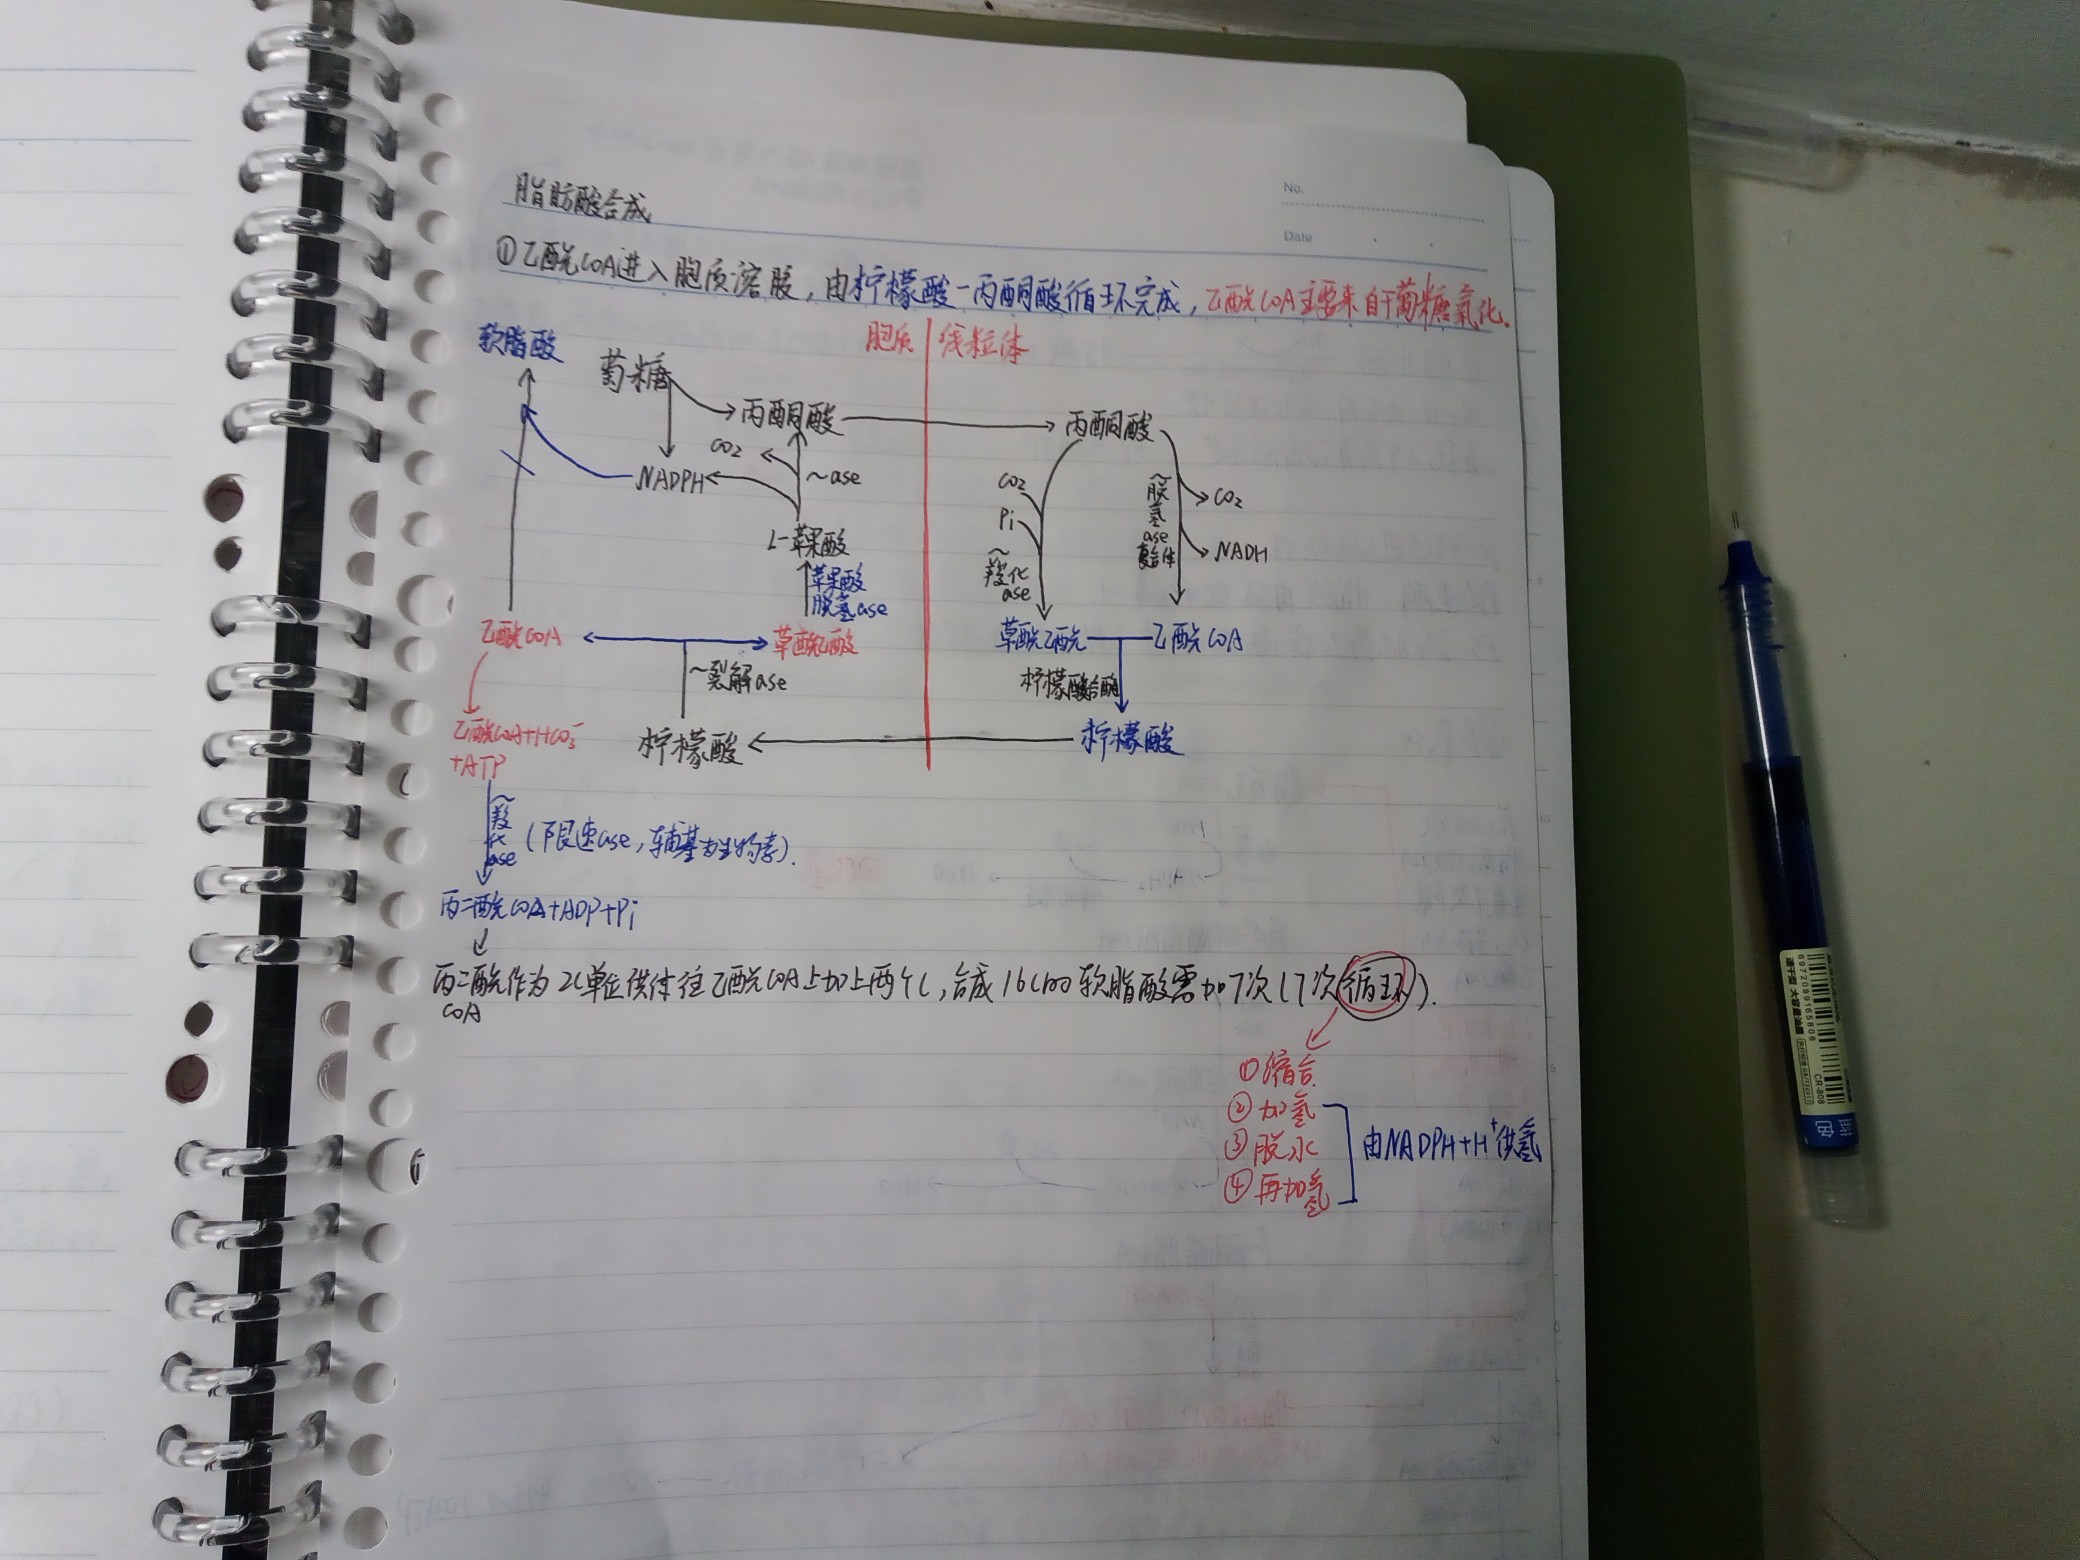 No.
Date
脂肪酸合成
①乙酰COA进入胞质溶胶，由柠檬酸-丙酮酸循环完成，乙酰COA主要来自于葡糖氧化.
胞质 线粒体
软脂酸
萄糖
丙酮酸
CO2
NADPH
~ase
L-苹果酸
苹果酸
脱氢ase
乙酰COA
草酰乙酸
~裂解ase
柠檬酸
丙酮酸
CO2
Pi
~
羧化
ase
~
脱
氢
ase
复合体
CO2
NADH
草酰乙酰
乙酰COA
柠檬酸合酶
柠檬酸
乙酰COA+HCO3-
+ATP
~
羧
化
ase
(限速ase，辅基为生物素).
丙二酰COA+ADP+Pi
丙二酰作为2C单位供体往乙酰COA上加上两个C，合成16C的软脂酸需加7次(7次循环).
COA
①缩合
②加氢
③脱水
④再加氢
氢
由NADPH+H+供氢
6972709916580
CR-808